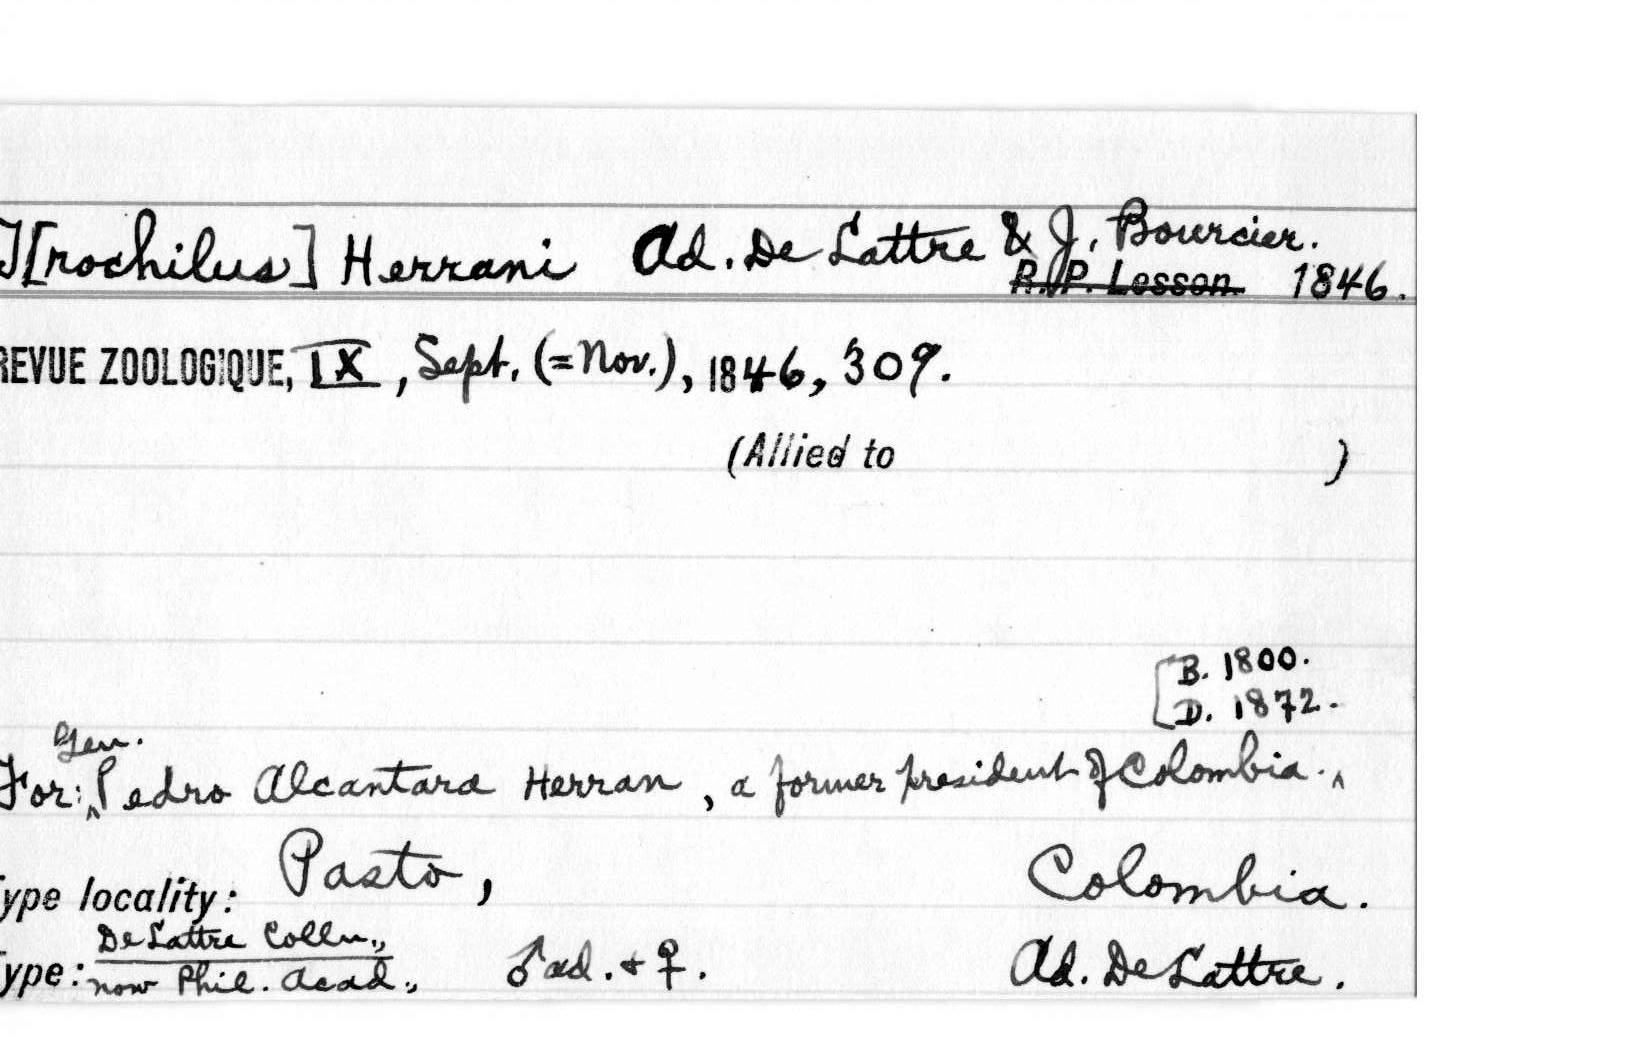 T[rochilus] Herrani Ad. De Lattre & J. Bourcier.
R. P. Lesson. 1846.
REVUE ZOOLOGIQUE, IX, Sept. (=Nov.), 1846, 309.
(Allied to )
[B. 1800.
D. 1872.
Gen.
For: ^ Pedro Alcantara Herran, a former president of Colombia. ^
Type locality: Pasto, Colombia.
De Lattre Colln.,
Type: now Phil. Acad., ♂ ad. & ♀. Ad. De Lattre.